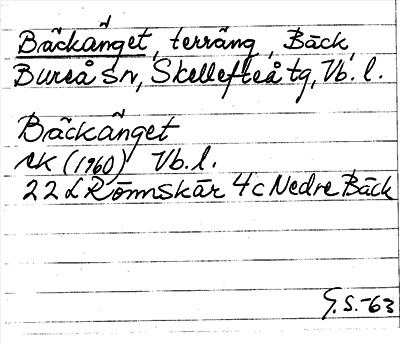 Bäckänget, terräng, Bäck,
Bureå sn, Skellefteå tg, Vb. l.
Bäckänget
rk (1960) Vb. l.
22 L Rönnskär 4c Nedre Bäck
G.S.-63